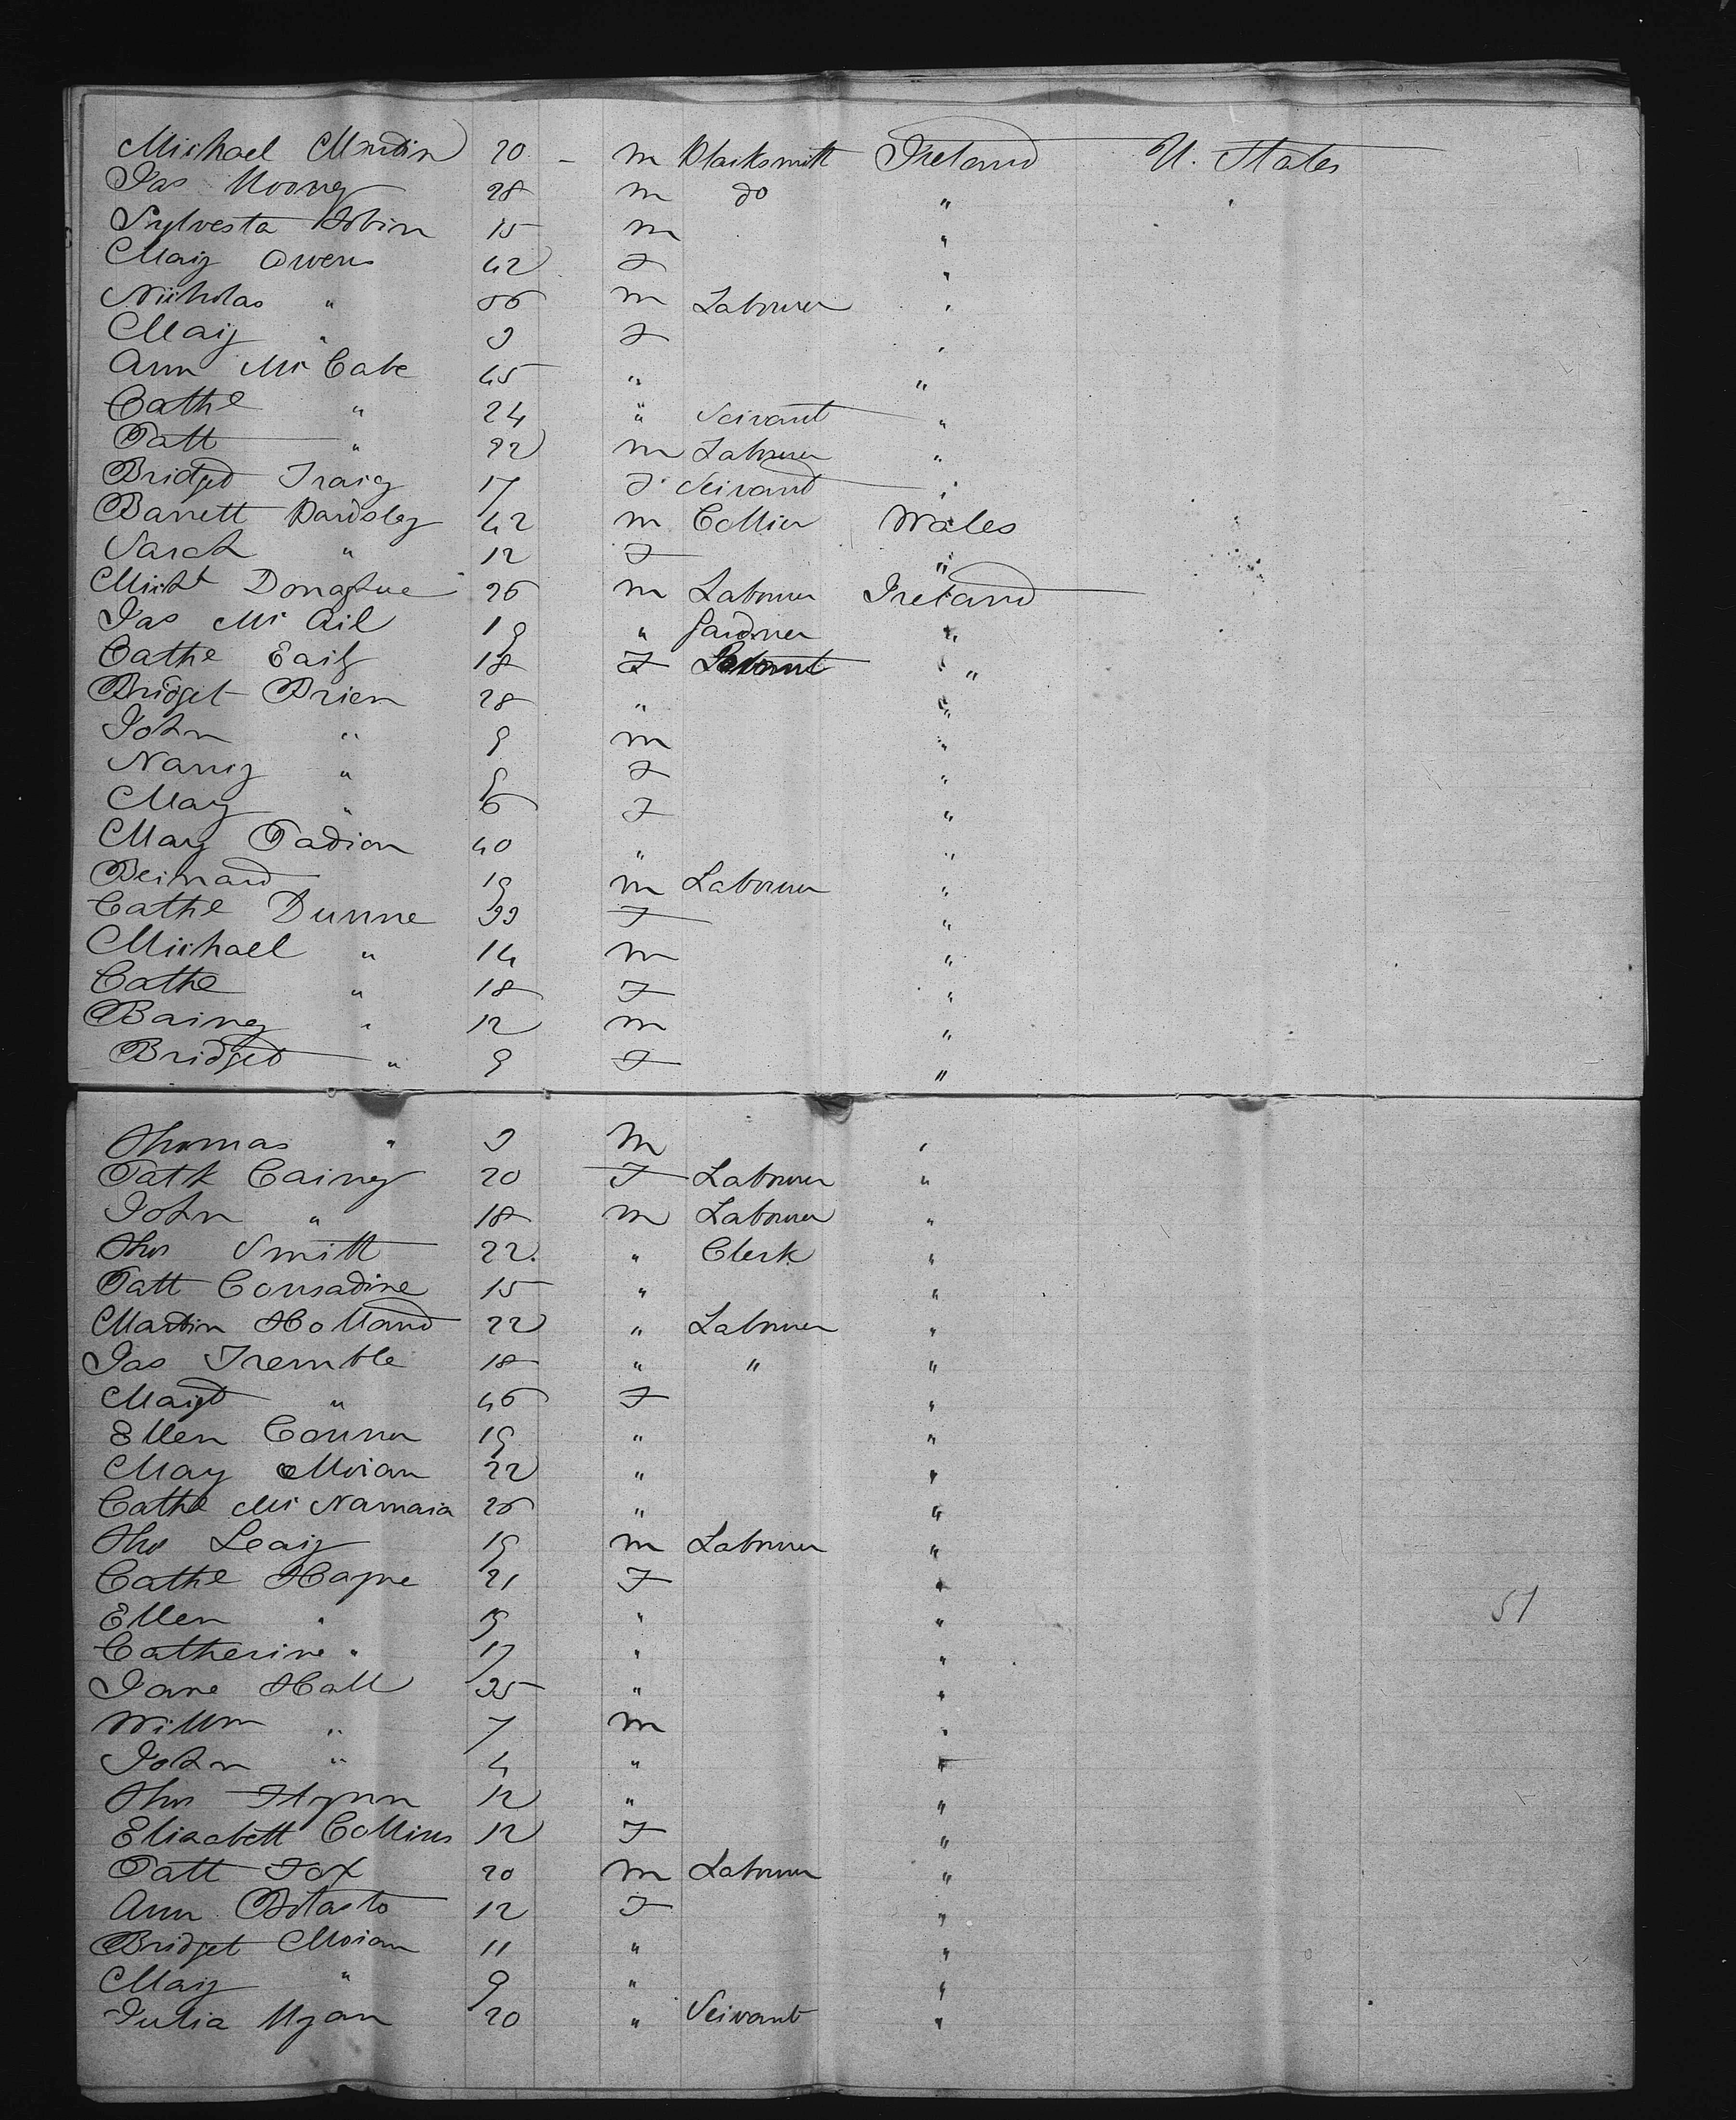 Michael Martin 20 - m Blacksmith Ireland U. States
Jas Mooney 28 m do "
Sylvesta Tobin 15 m "
Mary Owens 42 F "
Nicholas " 56 m Labourer "
Mary " 9 F "
Ann Mc Cabe 45 " "
Cathe " 24 " Servant "
Patt " 22 m Labourer "
Bridget 17 F Servant "
Barrett Bardsley 42 m Collier Wales
Sarah " 12 F "
Michl Donaghue 26 m Labourer Ireland
Jas Mc Ail 19 " Gardner "
Cathe Early 18 F Servant "
Bridget Brien 28 " "
John " 9 m "
Nancy " 8 F "
Mary " 6 F "
Mary Padion 40 " "
Bernard 19 m Labourer "
Cathe Dunne 33 F "
Michael " 14 m "
Cathe " 18 F "
Barney " 12 m "
Bridget " 9 F "
Thomas " 3 m "
Patk Carney 20 F Labourer "
John " 18 m Labourer "
Thos Smith 22. " Clerk "
Patt Consadine 15 " "
Martin Holland 22 " Labourer "
Jas Tremble 18 " " "
Margt " 46 F "
Ellen Connor 19 " "
Mary Moran 22 " "
Cathe Mc Namara 26 " "
Thos Leary 19 m Labourer "
Cathe Hayne 21 F "
Ellen " 19 " " 51
Catherine " 17 " "
Jane Hall 35 " "
Willm " 7 m "
John " 4 " "
Thos Flynn 12 " "
Elizabeth Collins 12 F "
Patt Fox 20 m Labourer "
Ann 12 F "
Bridget Moran 11 " "
Mary " 9 " "
Julia Ryan 20 " Servant "